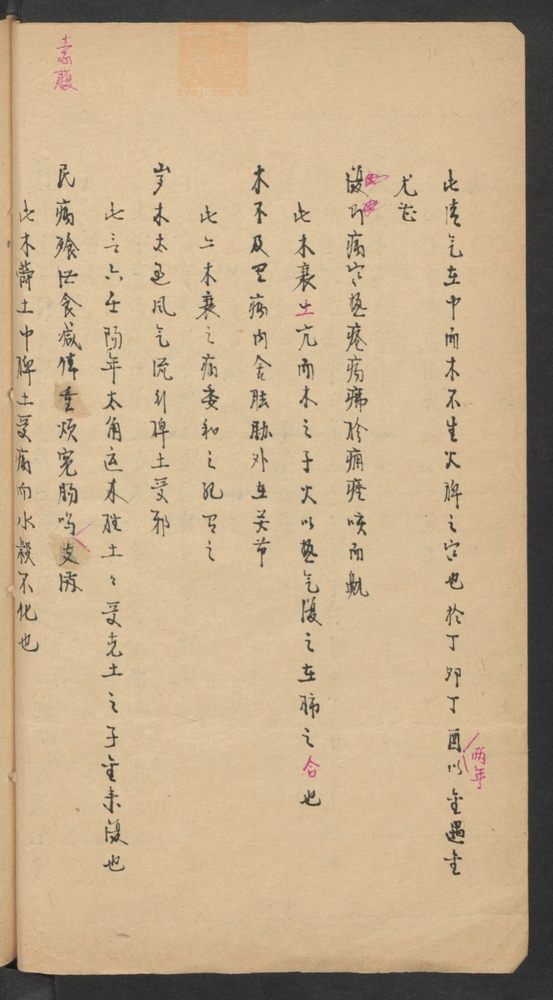 此清气在中而木不生火脾之害也於丁卯丁酉以金遇金
两年
尤甚
复则病寒热疮疡痱胗痈痤咳而鼽
此木衰土亢而木之子火以热气復之在肺之合也
木不及里病内舍胠胁外在关节
此二木衰之病委和之纪有之
岁木太过风气流行脾土受邪
此言六壬阳年太角运木胜土土受克土之子金来復也
民病飱泄食减体重烦冤肠鸣支满
此木凌土中脾土受病而水榖不化也